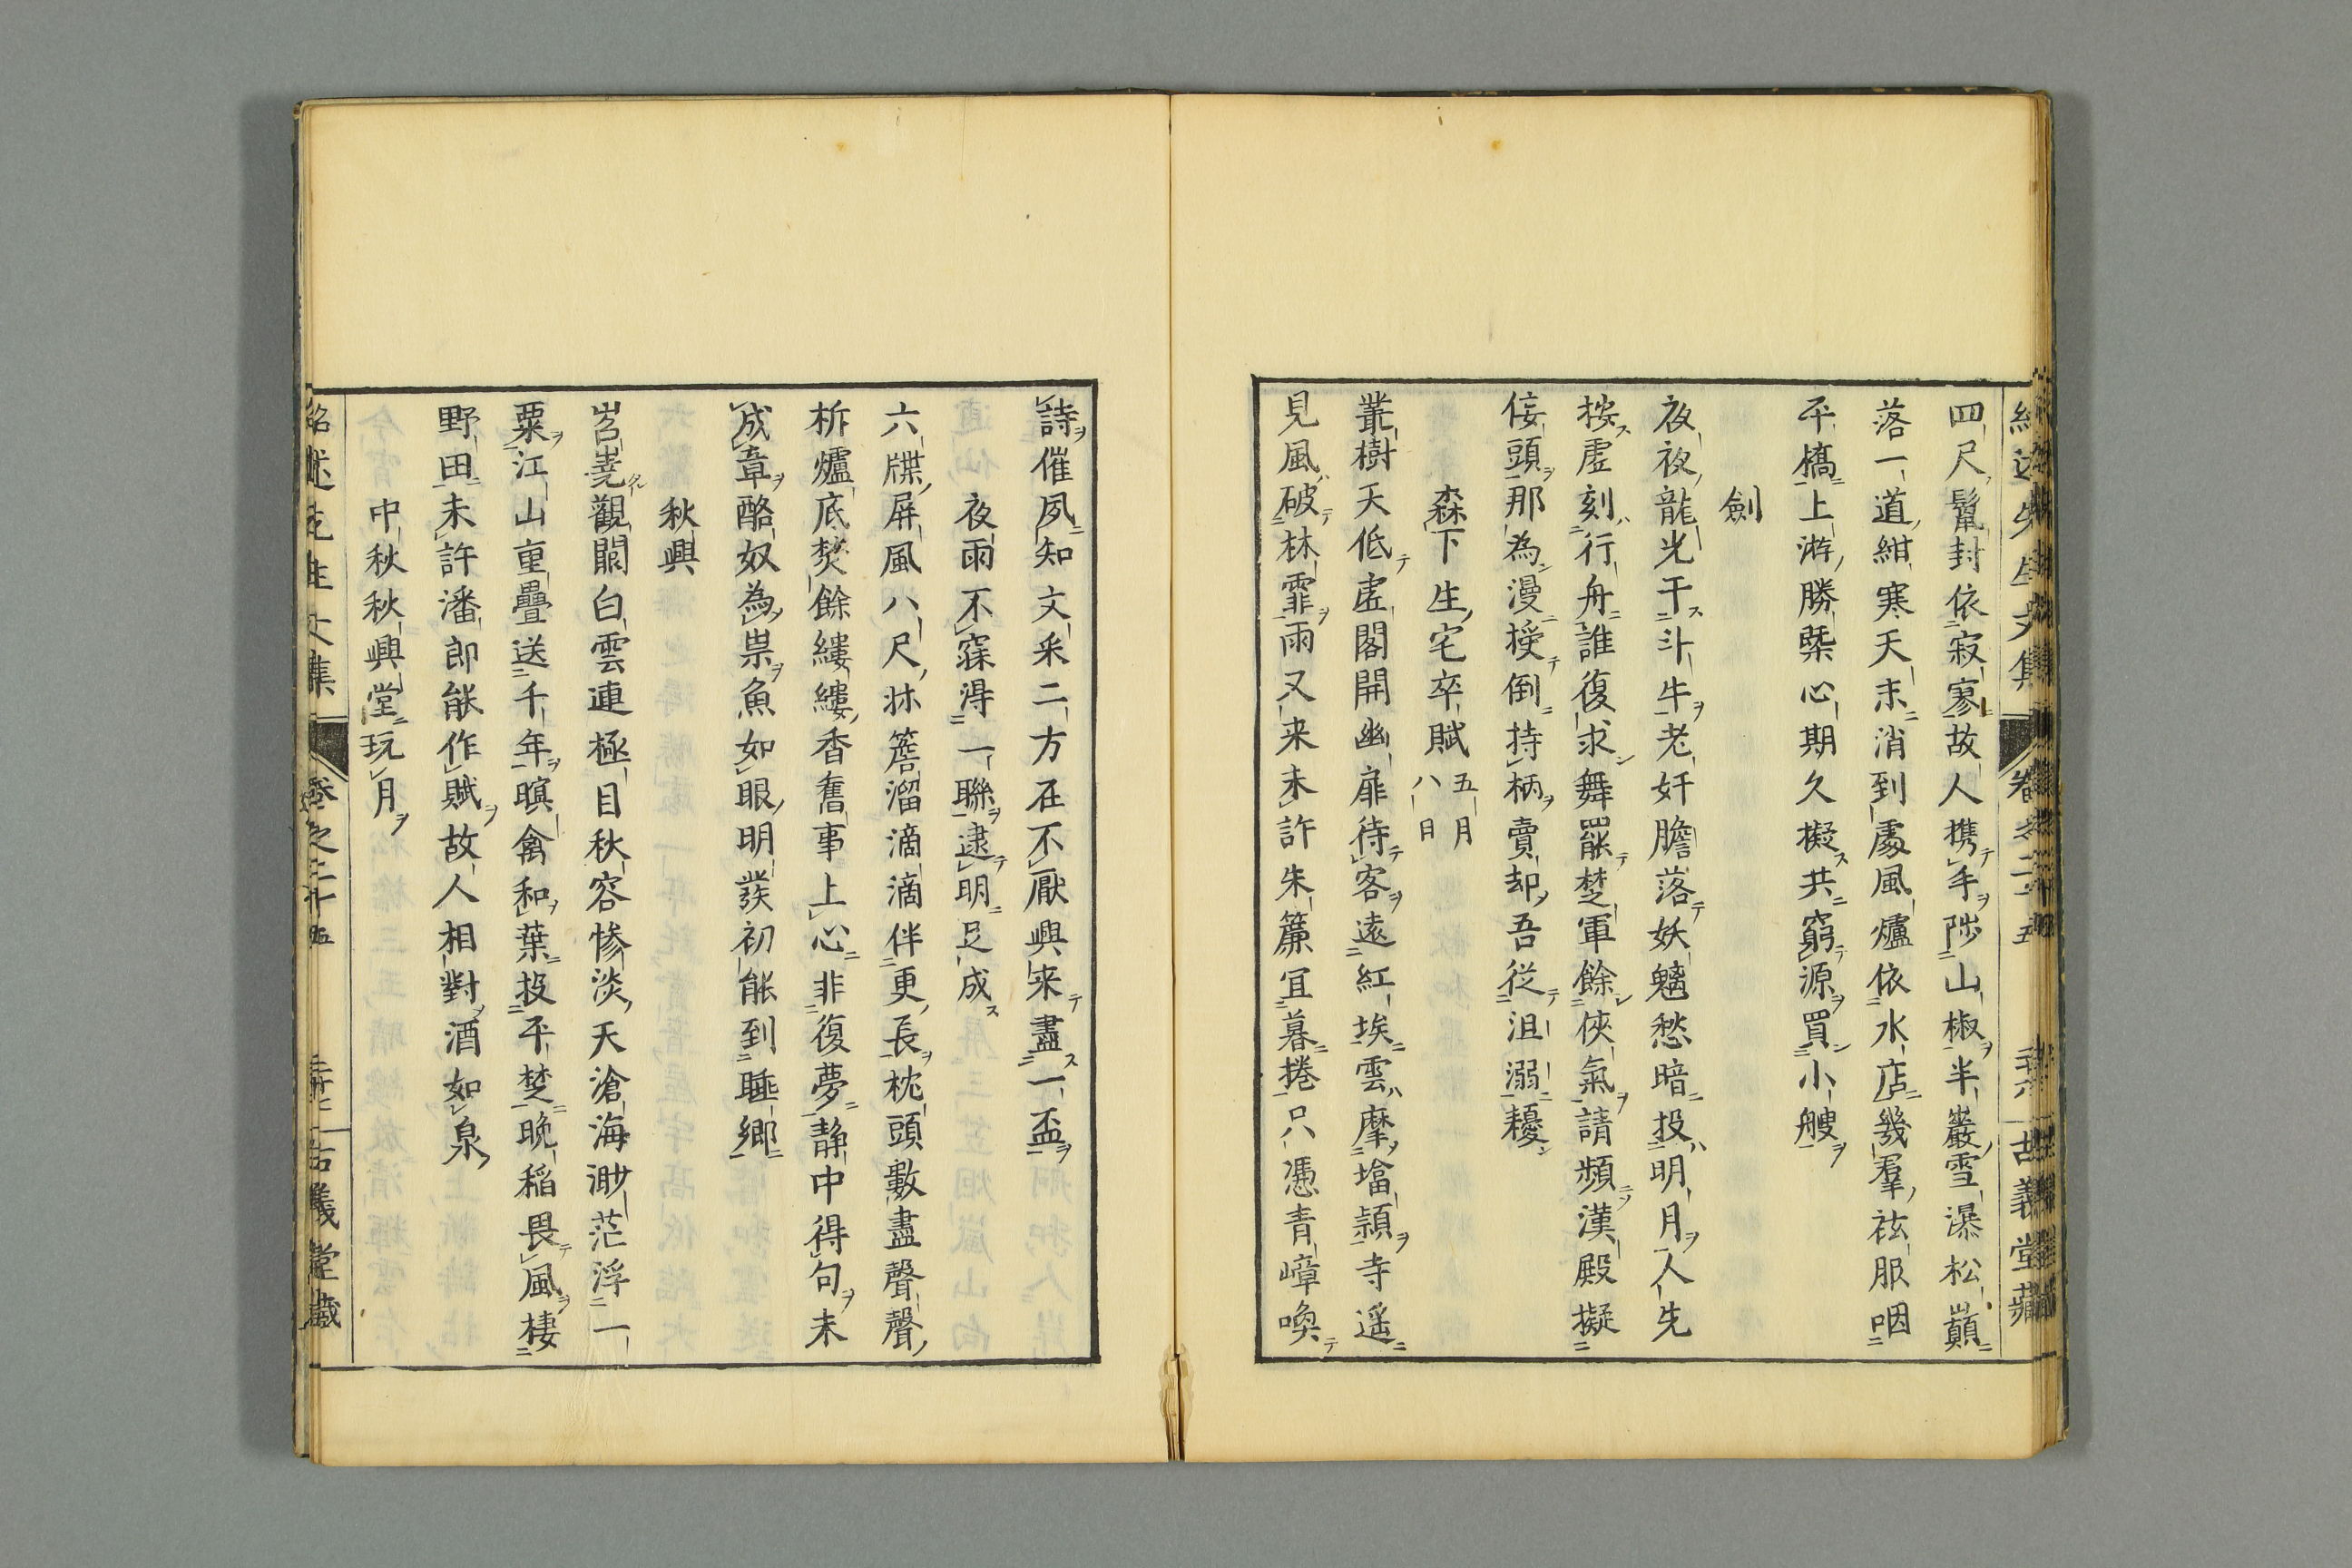 四尺鬣封依寂寥故人携手陟山椒半巖雪瀑松巔
落一道紺寒天末消到處風爐依水店幾羣祛服咽
平橋上游勝槩心期久擬共窮源買小艘
劍
夜夜龍光干斗牛老奸膽落妖魑愁暗投明月人先
按虛刻行舟誰復求舞罷楚軍餘俠氣請頻漢殿擬
侫頭那為漫授倒持柄賣却吾從沮溺耰
森下生宅卒賦五月八日
叢樹天低虛閣開幽扉待客遠紅埃雲摩塔頴寺遥
見風破林霏雨又来未許朱簾宜暮捲只憑青嶂喚
詩催夙知文采二方在不厭興来盡一盃
夜雨不寐得一聯逮明足成
六牒屏風八尺牀簷溜滴滴伴更長枕頭數盡聲聲
柝爐底焚餘縷縷香舊事上心非復夢静中得句未
成章酪奴為祟魚如眼明發初能到睡鄉
秋興
岧嶤觀闕白雲連極目秋容惨淡天滄海渺茫浮一
粟江山重疊送千年暝禽和葉投平楚晩稲畏風棲
野田未許潘郎能作賦故人相對酒如泉
中秋秋興堂玩月
紹述先生文集 卷之二十五 古義堂藏